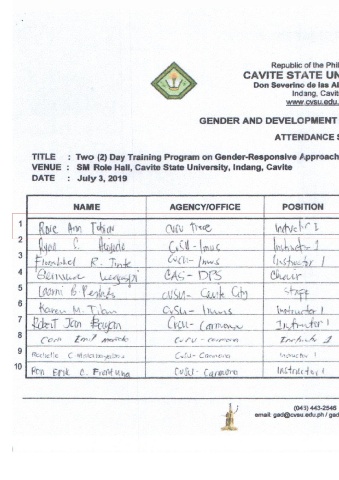 Republic of the Phil
CAVITE STATE UN
Don Severino de las Al
Indang, Cavit
www.cvsu.edu.
GENDER AND DEVELOPMENT
ATTENDANCE S
TITLE : Two (2) Day Training Program on Gender-Responsive Approach
VENUE : SM Role Hall, Cavite State University, Indang, Cavite
DATE : July 3, 2019
NAME AGENCY/OFFICE POSITION
1 Rose Ann CvSU Instructor 1
2 Ryan S. CvSU - Imus Instructor 1
3 R. CvSU - Imus Instructor 1
4 CAS - DPS Chair
5 B. CvSU - Cavite City Staff
6 Karen M. CvSU - Imus Instructor 1
7 Robert Jan CvSU - Carmona Instructor 1
8 Emil CvSU - Carmona Instructor 1
9 Rochelle C CvSU - Carmona Instructor 1
10 Ron Erik C. CvSU - Carmona Instructor 1
(045) 443-2546
email: gad@cvsu.edu.ph / gad